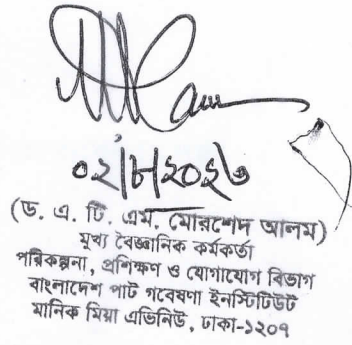 ০২|৮|২০২৩
(ড. এ. টি. এম. মোরশেদ আলম)
মুখ্য বৈজ্ঞানিক কর্মকর্তা
পরিকল্পনা, প্রশিক্ষণ ও যোগাযোগ বিভাগ
বাংলাদেশ পাট গবেষণা ইনস্টিটিউট
মানিক মিয়া এভিনিউ, ঢাকা-১২০৭